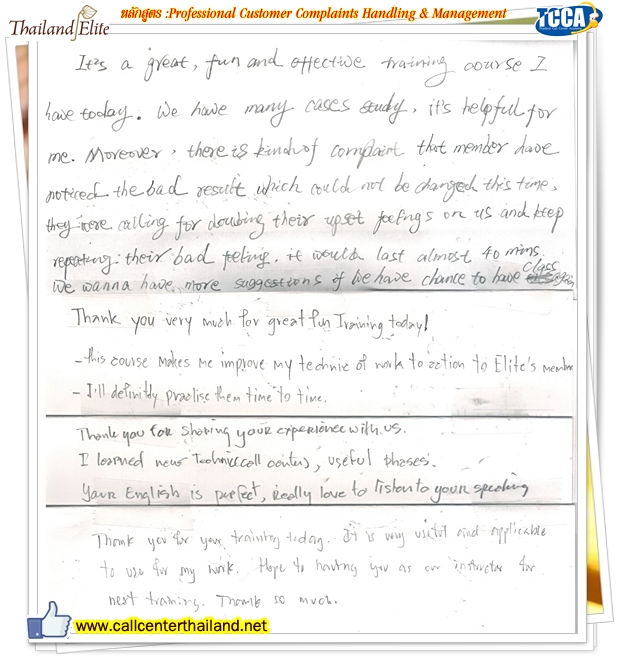 Thailand Elite
หลักสูตร :Professional Customer Complaints Handling & Management
TCCA
It's a great, fun and effective training course I
have today. We have many cases study, it's helpful for
me. Moreover, there is kind of complaint that member have
noticed the bad result which could not be changed this time,
they were calling for doubing their upset feelings on us and keep
repeating their bad feeling. it would last almost 40 mins.
We wanna have more suggestions if we have chance to have class again
Thank you very much for great fun Training today!
- this course makes me improve my technic of work to action to Elite's member
- I'll definitly practise them time to time.
Thank you for sharing your experience with us.
I learned new Technic (call center), useful phases.
Your English is perfect, Really love to listen to your speaking
Thank you for your training today. It is very useful and applicable
to use for my work. Hope to having you as our instructor for
next training. Thank so much.
www.callcenterthailand.net